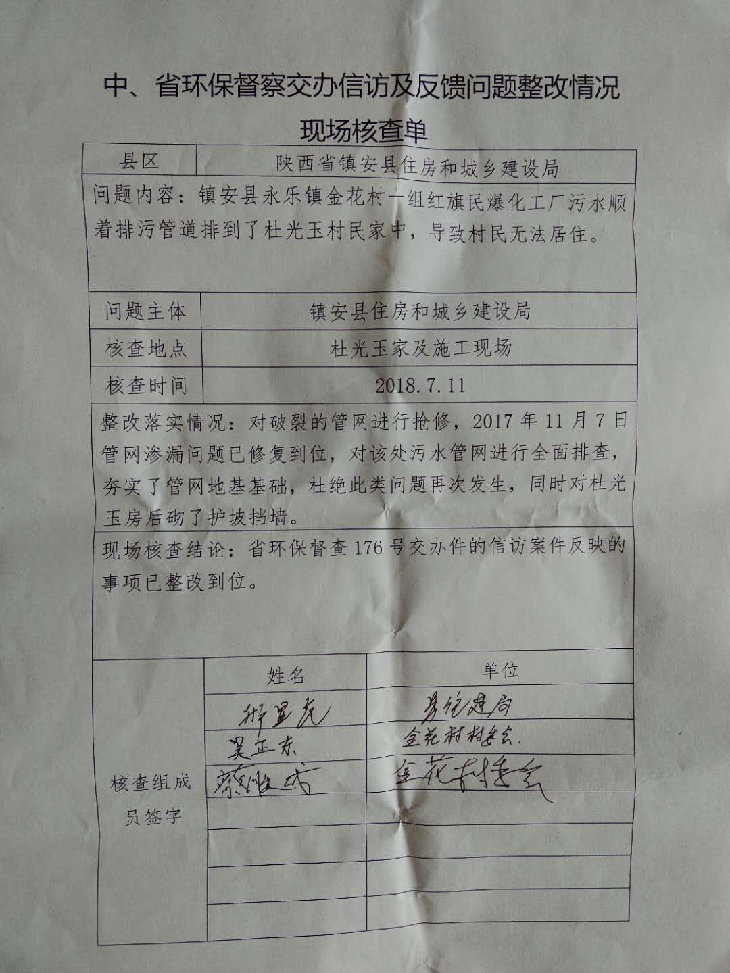 中、省环保督察交办信访及反馈问题整改情况
现场核查单
县区 陕西省镇安县住房和城乡建设局
问题内容：镇安县永乐镇金花村一组红旗民爆化工厂污水顺
着排污管道排到了杜光玉村民家中，导致村民无法居住。
问题主体 镇安县住房和城乡建设局
核查地点 杜光玉家及施工现场
核查时间 2018.7.11
整改落实情况：对破裂的管网进行抢修，2017年11月7日
管网渗漏问题已修复到位，对该处污水管网进行全面排查，
夯实了管网地基基础，杜绝此类问题再次发生，同时对杜光
玉房后砌了护坡挡墙。
现场核查结论：省环保督查176号交办件的信访案件反映的
事项已整改到位。
姓名 单位
县住建局
吴正东 金花村村委会.
金花村村委会
核查组成
员签字